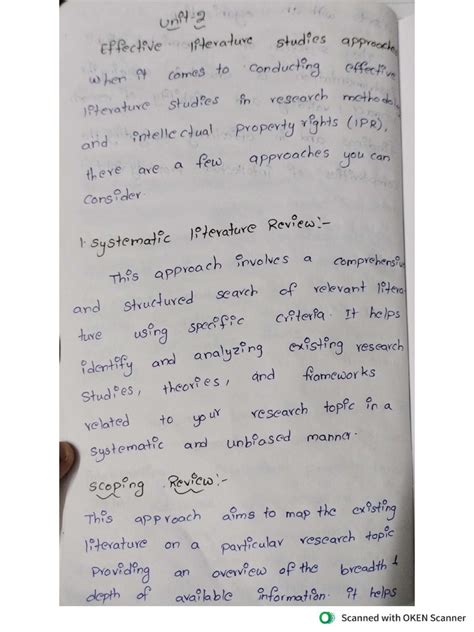 Unit-2
Effective literature studies approache
when it comes to conducting effective
literature studies in research methodol
and intellectual property rights (IPR),
there are a few approaches you can
Consider.
1. Systematic literature Review:-
This approach involves a comprehensiv
and structured search of relevant litera
ture using specific criteria. It helps
identify and analyzing existing research
studies, theories, and frameworks
related to your research topic in a
systematic and unbiased manner.
Scoping Review:-
This approach aims to map the existing
literature on a particular research topic
Providing an overview of the breadth &
depth of available information. it helps
Scanned with OKEN Scanner